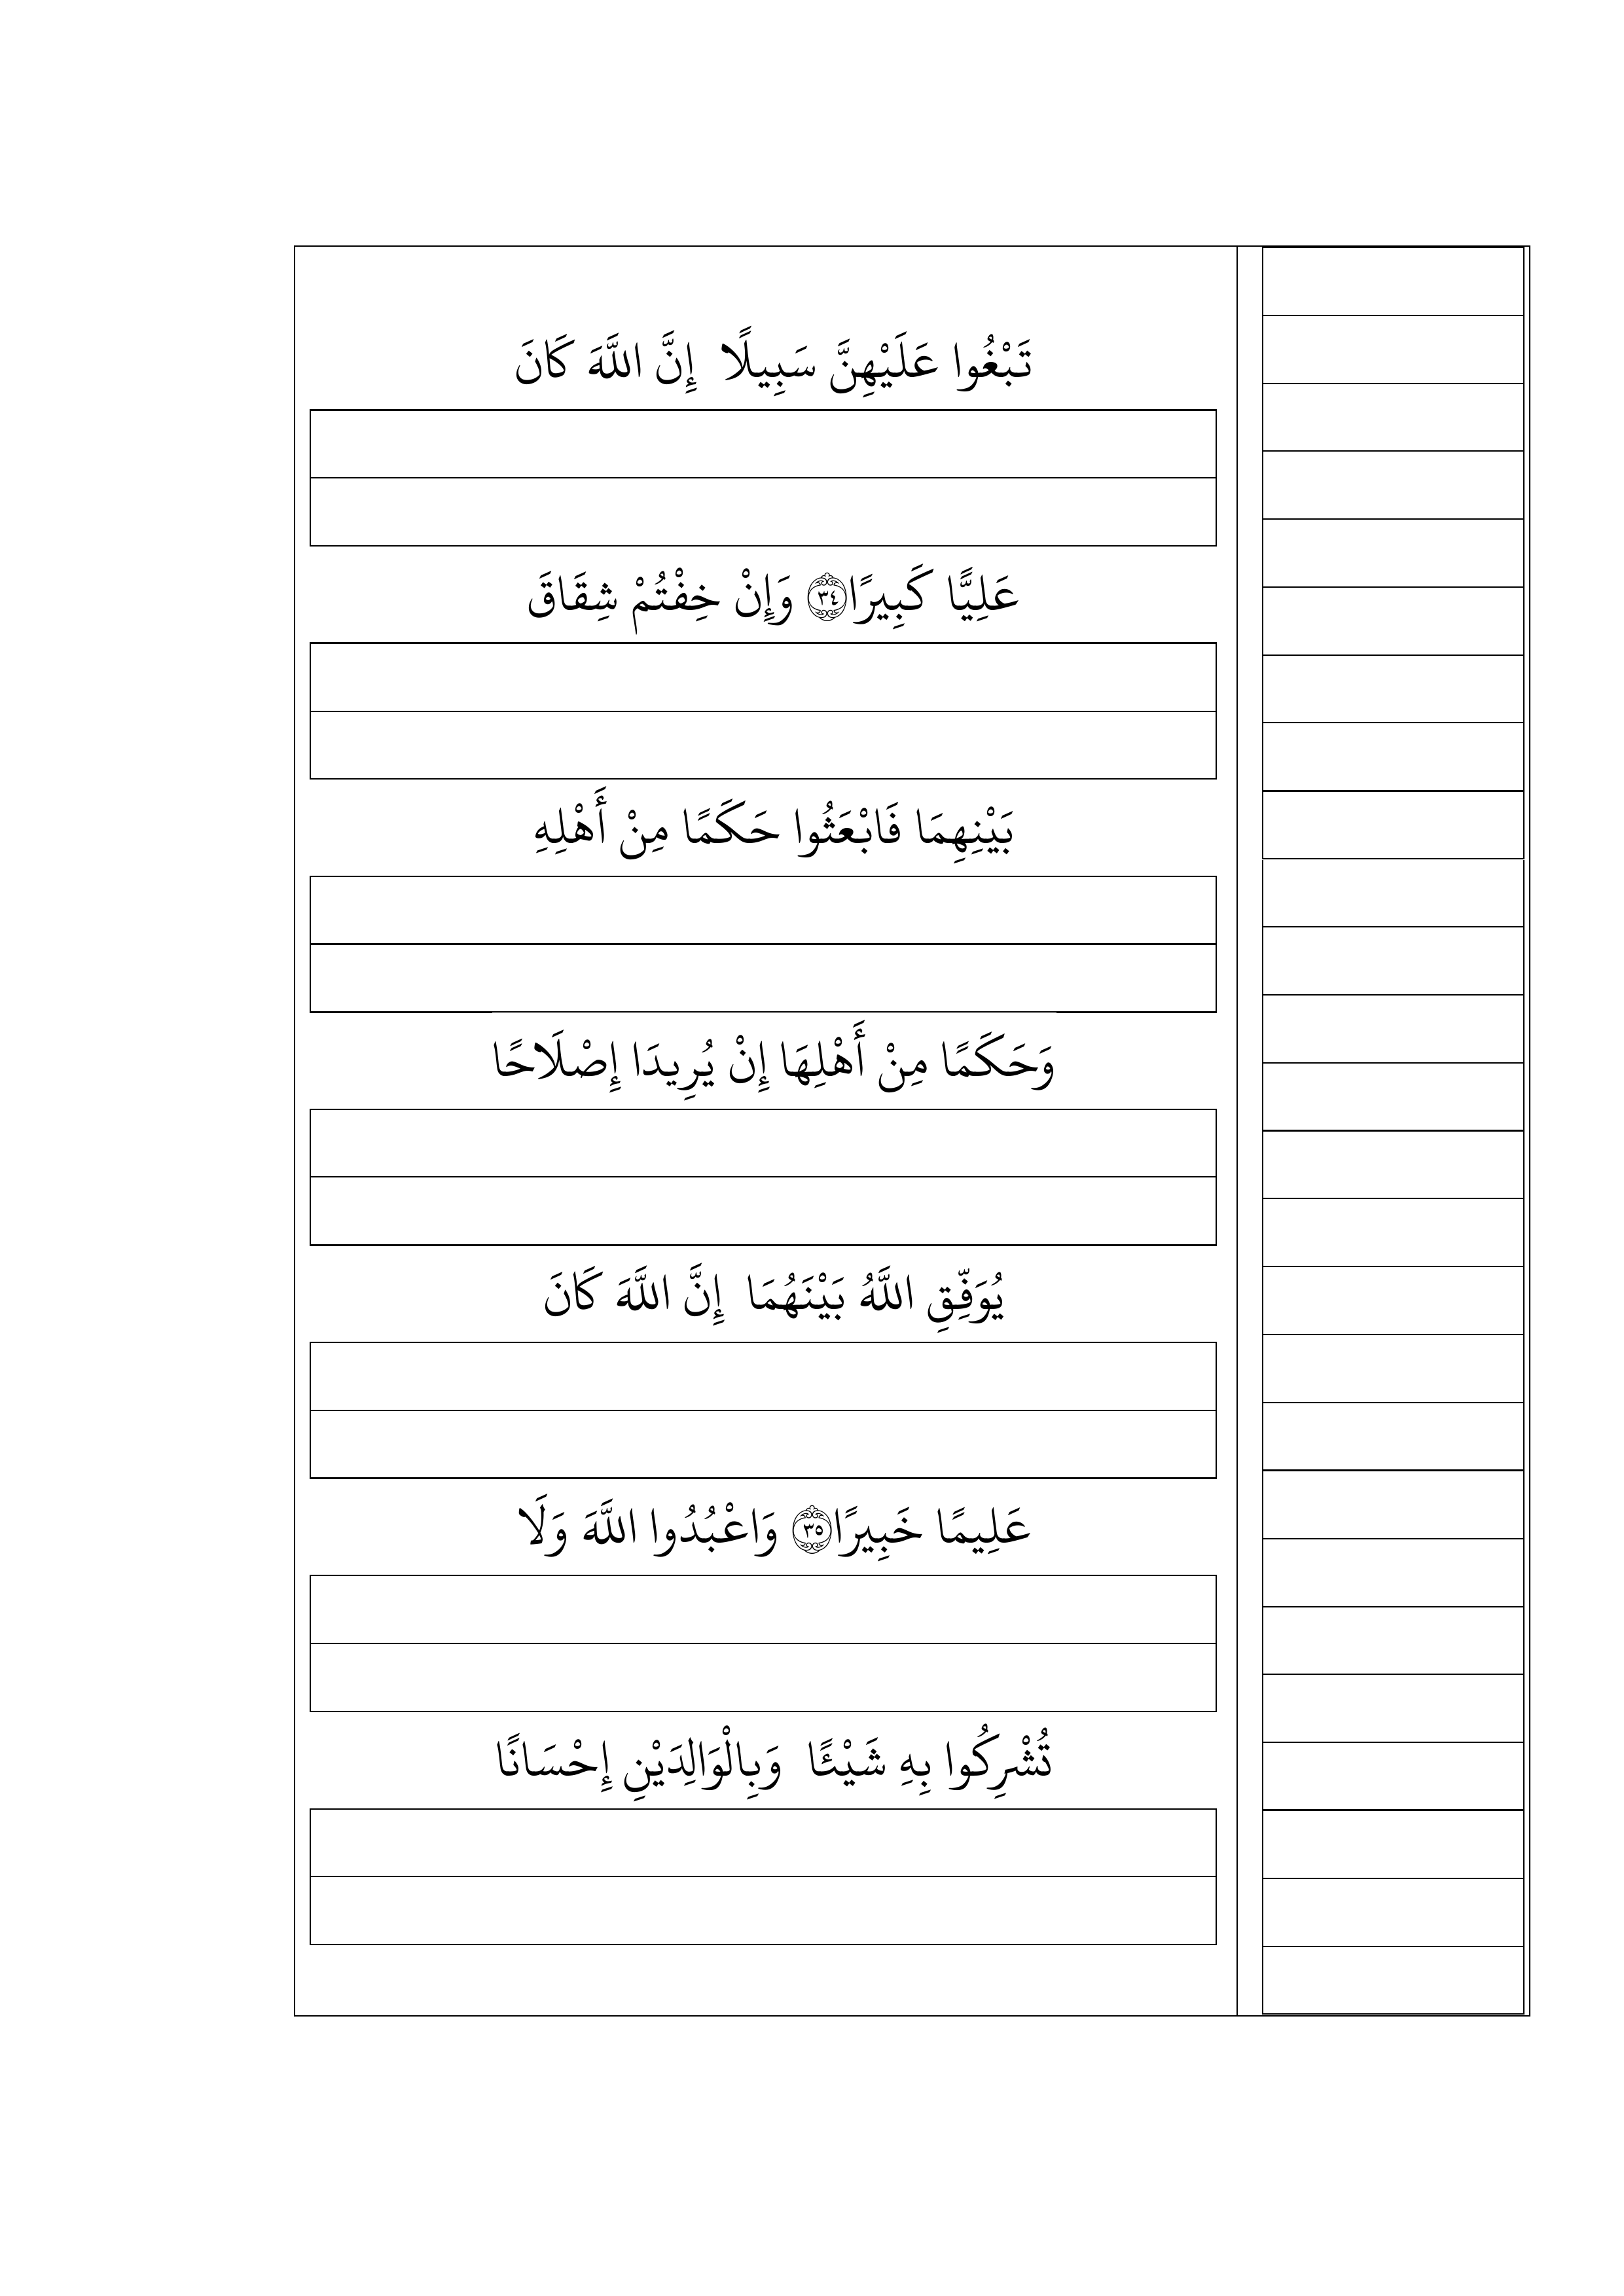 تَبْغُوا عَلَيْهِنَّ سَبِيلًا إِنَّ اللَّهَ كَانَ
عَلِيًّا كَبِيرًا ٣٤ وَإِنْ خِفْتُمْ شِقَاقَ
بَيْنِهِمَا فَابْعَثُوا حَكَمًا مِنْ أَهْلِهِ
وَحَكَمًا مِنْ أَهْلِهَا إِنْ يُرِيدَا إِصْلَاحًا
يُوَفِّقِ اللَّهُ بَيْنَهُمَا إِنَّ اللَّهَ كَانَ
عَلِيمًا خَبِيرًا ٣٥ وَاعْبُدُوا اللَّهَ وَلَا
تُشْرِكُوا بِهِ شَيْئًا وَبِالْوَالِدَيْنِ إِحْسَانًا